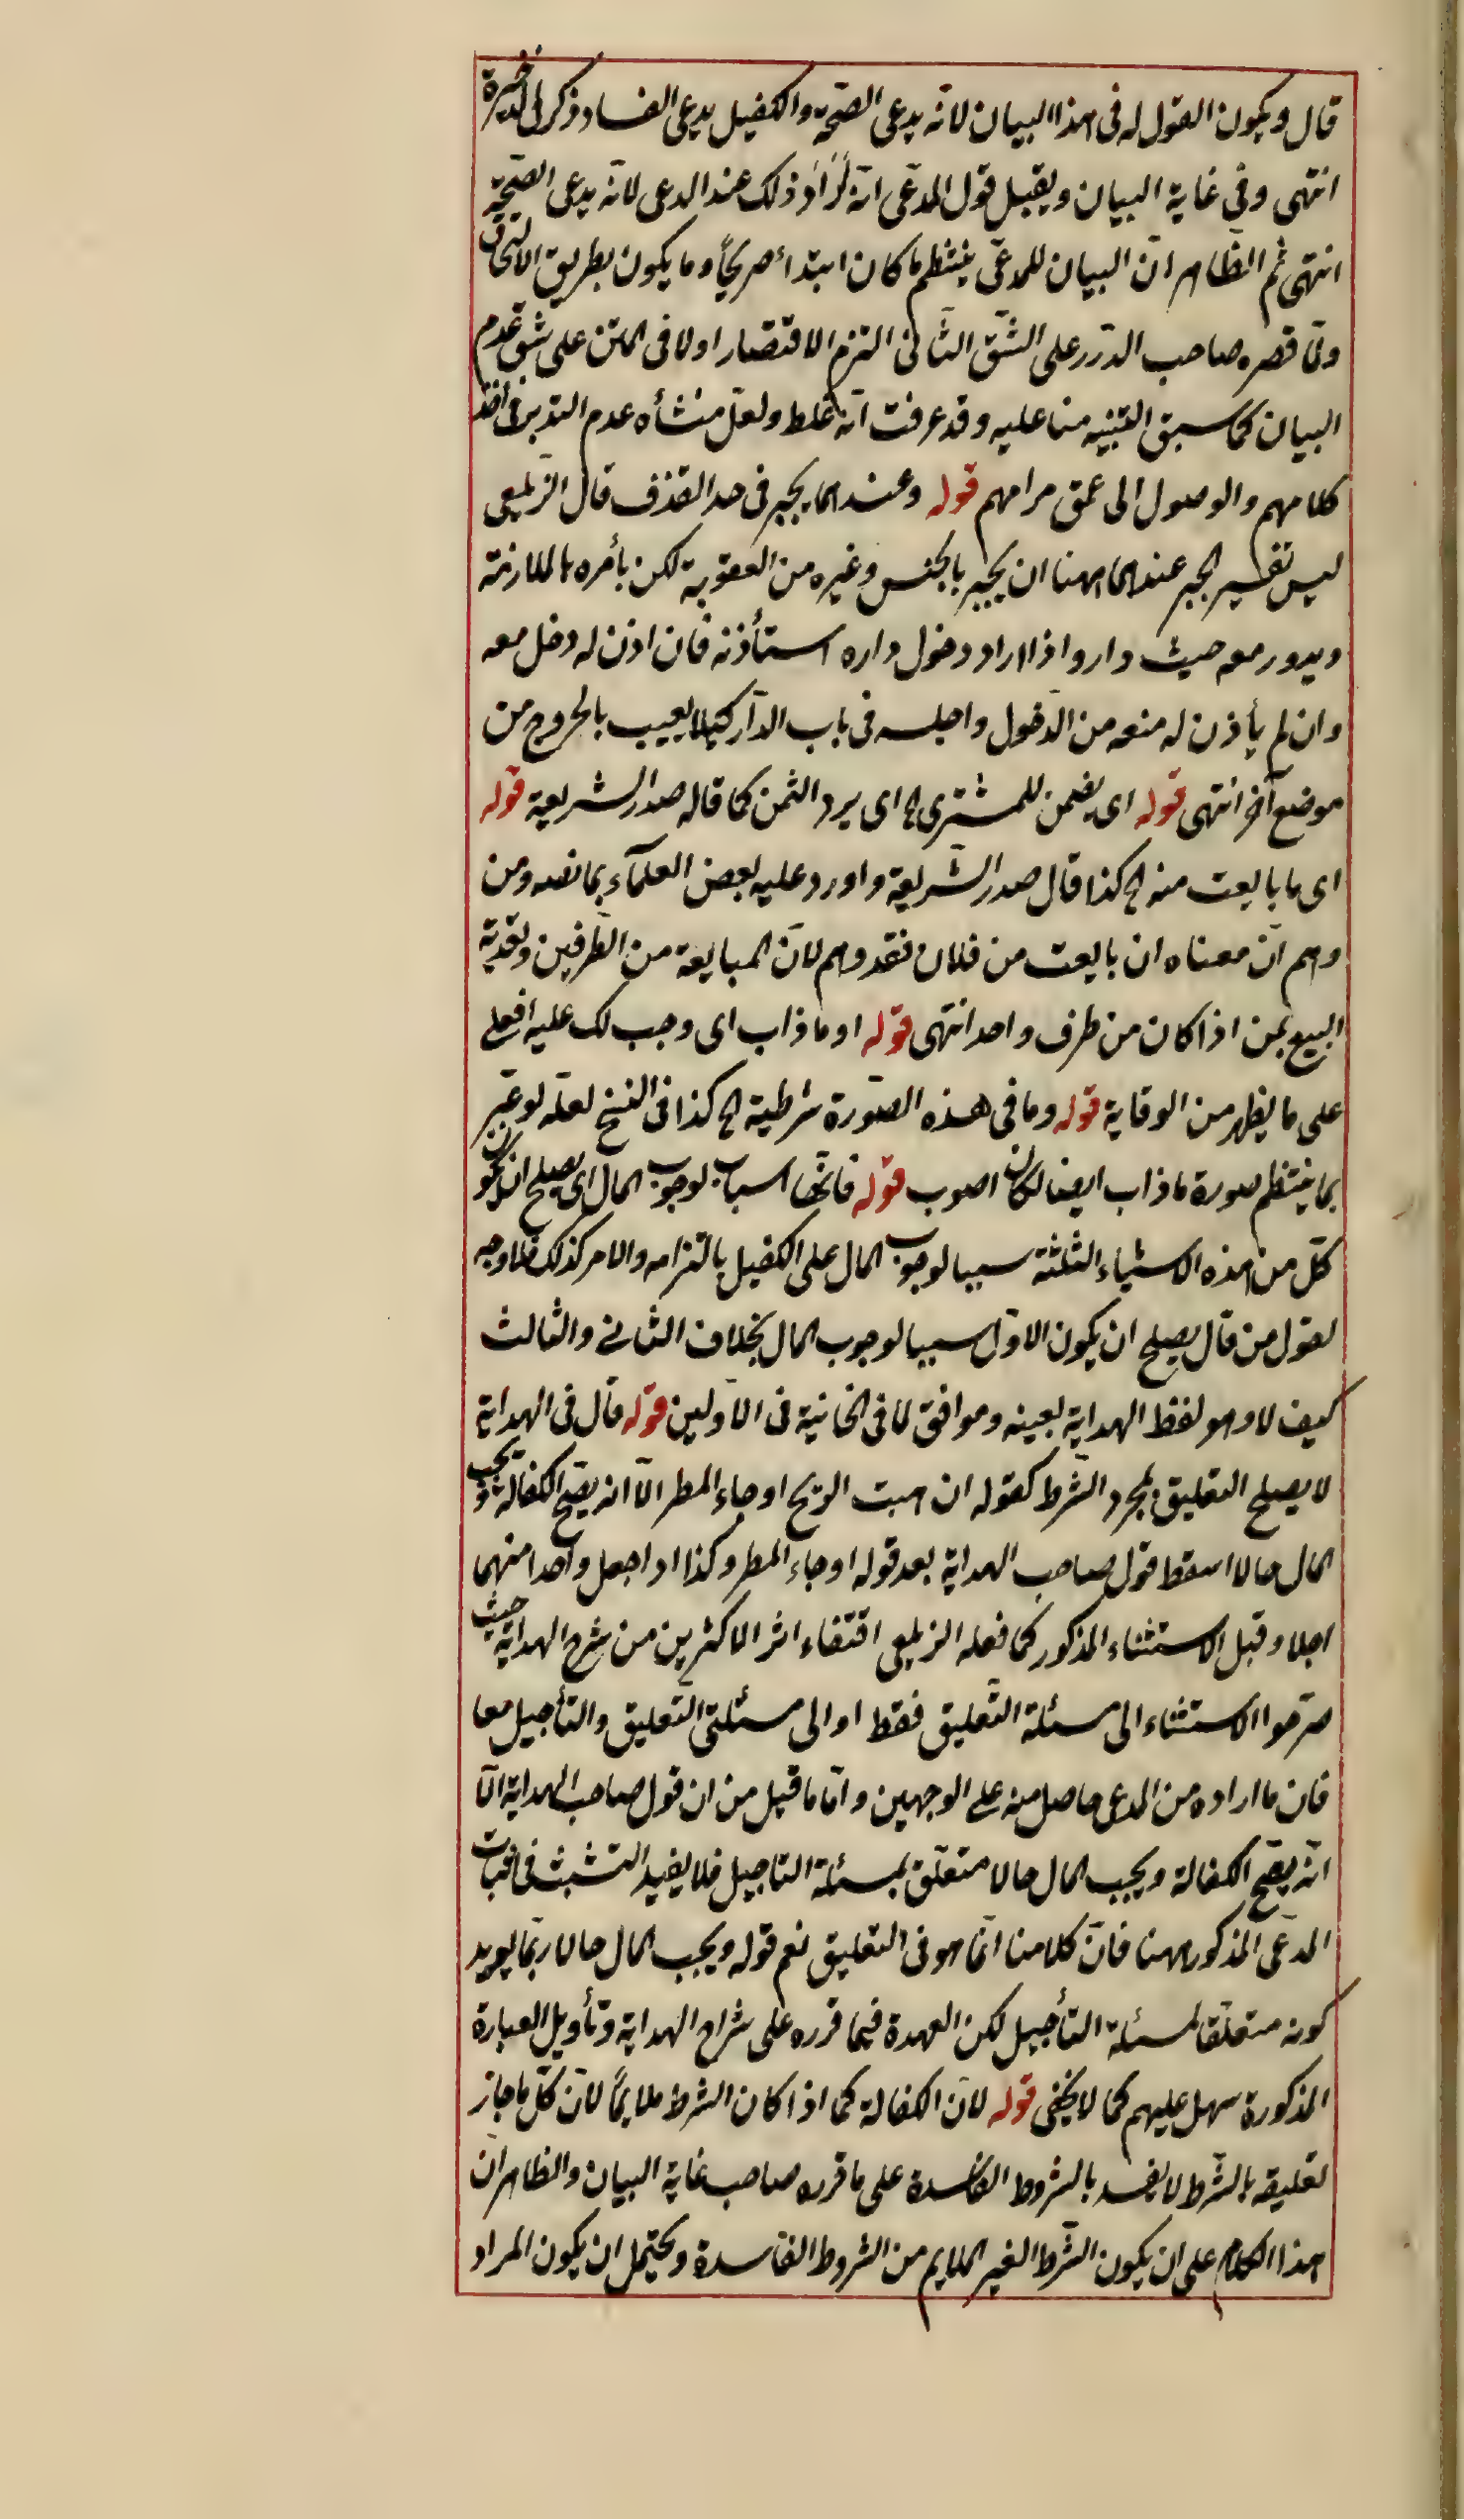 قال ويكون القول له فى هذا البيان لانه يدعى الصحّة والكفيل يدعى الفساد وذكر فى الذخيرة
انتهى وفى غاية البيان ويقبل قول المدّعى انّه اراد ذلك عند الدعوى لانّه يدعى الصحّة
انتهى ثم الظّاهر انّ البيان للمدعّى ينتظم ما كان ابتداء صريحًا وما يكون بطريق الالتحاق
ولمّا قصره صاحب الدّرر على الشّق الثّانى التزم الاقتصار اولا فى المتن على شق عدم
البيان كما سبق التنبيه منا عليه وقد عرفت انّه غلط ولعلّ منشأه عدم التدبر فى اخذ
كلامهم والوصول الى عمق مرامهم قوله وعندهما يجبر فى حد القذف قال الزّيلعى
ليس تفسير الجبر عندهما ههنا ان يجبر بالحبس وغيره من العقوبة لكن يأمره بالملازمة
ويدور معه حيث دار واذا اراد دخول داره استأذنه فان اذن له دخل معه
وان لم يأذن له منعه من الدّخول واجلسه فى باب الدّار كيلا يغيب بالخروج من
موضع آخر انتهى قوله اى يضمن للمشترى الخ اى يرد الثمن كما قاله صدر الشريعة قوله
اى ما بايعت منه الخ كذا قال صدر الشّريعة واورد عليه بعض العلمآء بما نصه ومن
وهم انّ معناه ان بايعت من فلان فقد وهم لانّ المبايعة من الطّرفين وتعدية
البيع بمن اذا كان من طرف واحد انتهى قوله او ما ذاب اى وجب لك عليه فعلى
على ما يظهر من الوقاية قوله وما فى هذه الصّورة شرطية الخ كذا فى النسخ لعلّه لو عبّر
بما ينتظم صورة ما ذاب ايضا لكان اصوب قوله فانّها اسباب لوجوب المال اى يصلح ان يكون
كلّ من هذه الاشياء الثلثة سببا لوجوب المال على الكفيل بالتزامه والامر كذلك فلا وجه
لقول من قال يصلح ان يكون الاوّل سببا لوجوب المال بخلاف الثانى والثالث
كيف لا وهو لفظ الهداية بعينه وموافق لما فى الخانية فى الاوّلين قوله قال فى الهداية
لا يصلح التعليق بمجرد الشّرط كقوله ان هبت الريح او جاء المطر الّا انه يصّح الكفالة ويجب
المال حالا اسقط قول صاحب الهداية بعد قوله او جاء المطر وكذا اذا جعل واحدا منهما
اجلا وقبل الاستثناء المذكور كما فعله الزيلعى اقتفاء اثر الاكثرين من شرح الهداية حيث
صرّحوا الاستثناء الى مسئلة التّعليق فقط او الى مسئلتى التّعليق والتأجيل معا
فان ما اراده من المدعى حاصل منه على الوجهين وامّا ما قيل من ان قول صاحب الهداية الّا
انّه يصّح الكفالة ويجب المال حالا متعلّق بمسئلة التاجيل فلا يفيد التشبث فى اثبات
المدّعى المذكور ههنا فانّ كلامنا انّما هو فى التعليق نعم قوله ويجب المال حالا ربّما يؤيد
كونه متعلّقا لمسئلة التأجيل لكن العهدة فيما قرره على شراح الهداية وتأويل العبارة
المذكورة سهل عليهم كما لا يخفى قوله لانّ الكفالة كما اذا كان الشرط ملايمًا لانّ كلّ ما جاز
تعليقه بالشّرط لا يفسد بالشروط الفاسدة على ما قرره صاحب غاية البيان والظاهر انّ
هذا الكلام على ان يكون الشّرط الغير الملايم من الشروط الفاسدة ويحتمل ان يكون المراد